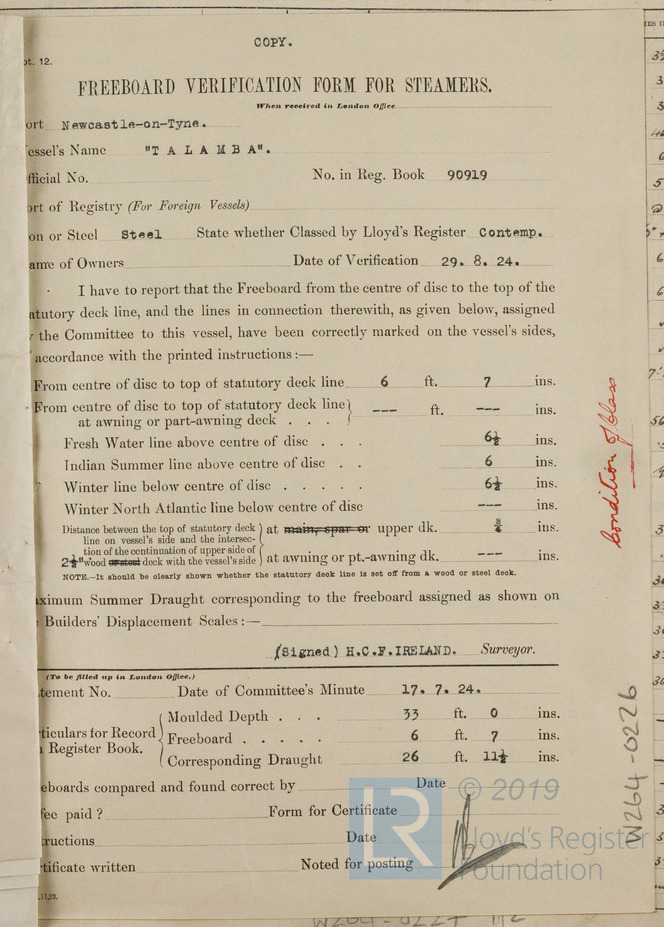 COPY.
pt. 12.
FREEBOARD VERIFICATION FORM FOR STEAMERS.
When received in London Office
ort Newcastle-on-Tyne.
essel's Name "T A L A M B A".
fficial No. No. in Reg. Book 90919
ort of Registry (For Foreign Vessels)
on or Steel Steel State whether Classed by Lloyd's Register Contemp.
ame of Owners Date of Verification 29. 8. 24.
I have to report that the Freeboard from the centre of disc to the top of the
atutory deck line, and the lines in connection therewith, as given below, assigned
y the Committee to this vessel, have been correctly marked on the vessel's sides,
accordance with the printed instructions :—
From centre of disc to top of statutory deck line 6 ft. 7 ins.
From centre of disc to top of statutory deck line
at awning or part-awning deck . . . --- ft. --- ins.
Fresh Water line above centre of disc . . . 6½ ins.
Indian Summer line above centre of disc . . 6 ins.
Winter line below centre of disc . . . . . 6½ ins.
Winter North Atlantic line below centre of disc --- ins.
Distance between the top of statutory deck
line on vessel's side and the intersec-
tion of the continuation of upper side of
2½" wood or steel deck with the vessel's side
at main, spar or upper dk. ¾ ins.
at awning or pt.-awning dk. --- ins.
NOTE.—It should be clearly shown whether the statutory deck line is set off from a wood or steel deck.
aximum Summer Draught corresponding to the freeboard assigned as shown on
Builders' Displacement Scales :—
(Signed) H.C.F.IRELAND. Surveyor.
(To be filled up in London Office.)
tement No. Date of Committee's Minute 17. 7. 24.
ticulars for Record
Register Book.
Moulded Depth . . . 33 ft. 0 ins.
Freeboard . . . . . 6 ft. 7 ins.
Corresponding Draught 26 ft. 11½ ins.
eboards compared and found correct by Date
fee paid ? Form for Certificate
tructions Date
tificate written Noted for posting
,11,23.
Condition of Class
W264-0226
W264-0227 1/2
© 2019
LR
Lloyd's Register
Foundation